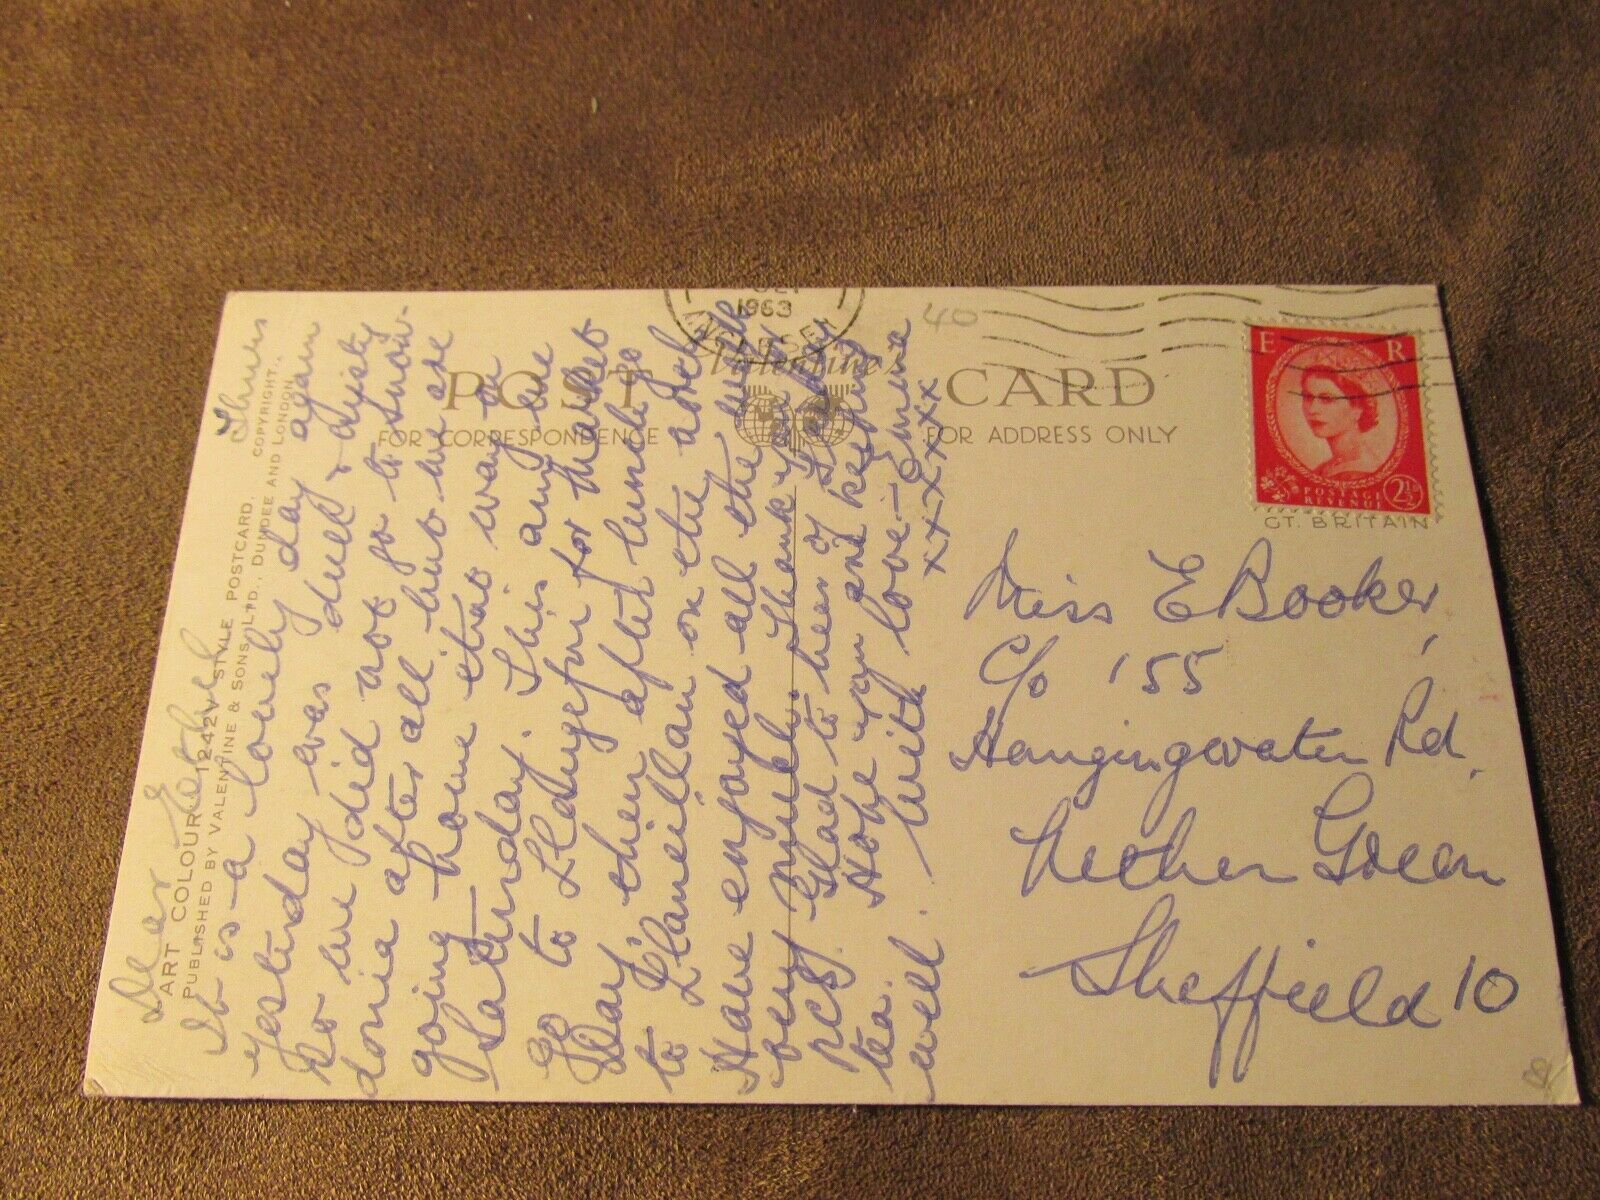 Thurs
Dear Ethel
It is a lovely day again
yesterday was dull & misty
so we did not go to Snow-
donia after all but we are
going home that way on
Saturday. This am we
go to Llangefni for market
Day, then after lunch go
to Llaneilian on the
Have enjoyed all the
very much. Thank you for
pcs. Glad to hear of
tea. Hope you are keeping
well. With love –
xxxxxxx
ART COLOUR 1242V STYLE POSTCARD. COPYRIGHT.
PUBLISHED BY VALENTINE & SONS, LTD., DUNDEE AND LONDON.
POST CARD
Valentine's
FOR CORRESPONDENCE
FOR ADDRESS ONLY
1963
40
E R
POSTAGE REVENUE
2½D
GT. BRITAIN
Miss E Booker,
c/o 155
Hangingwater Rd,
Nether Green
Sheffield 10